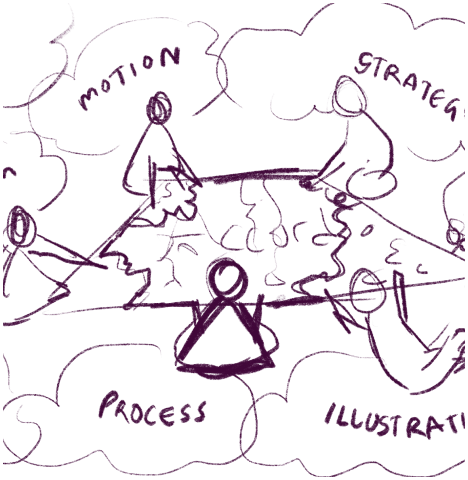 MOTION
STRATEG
PROCESS
ILLUSTRATI